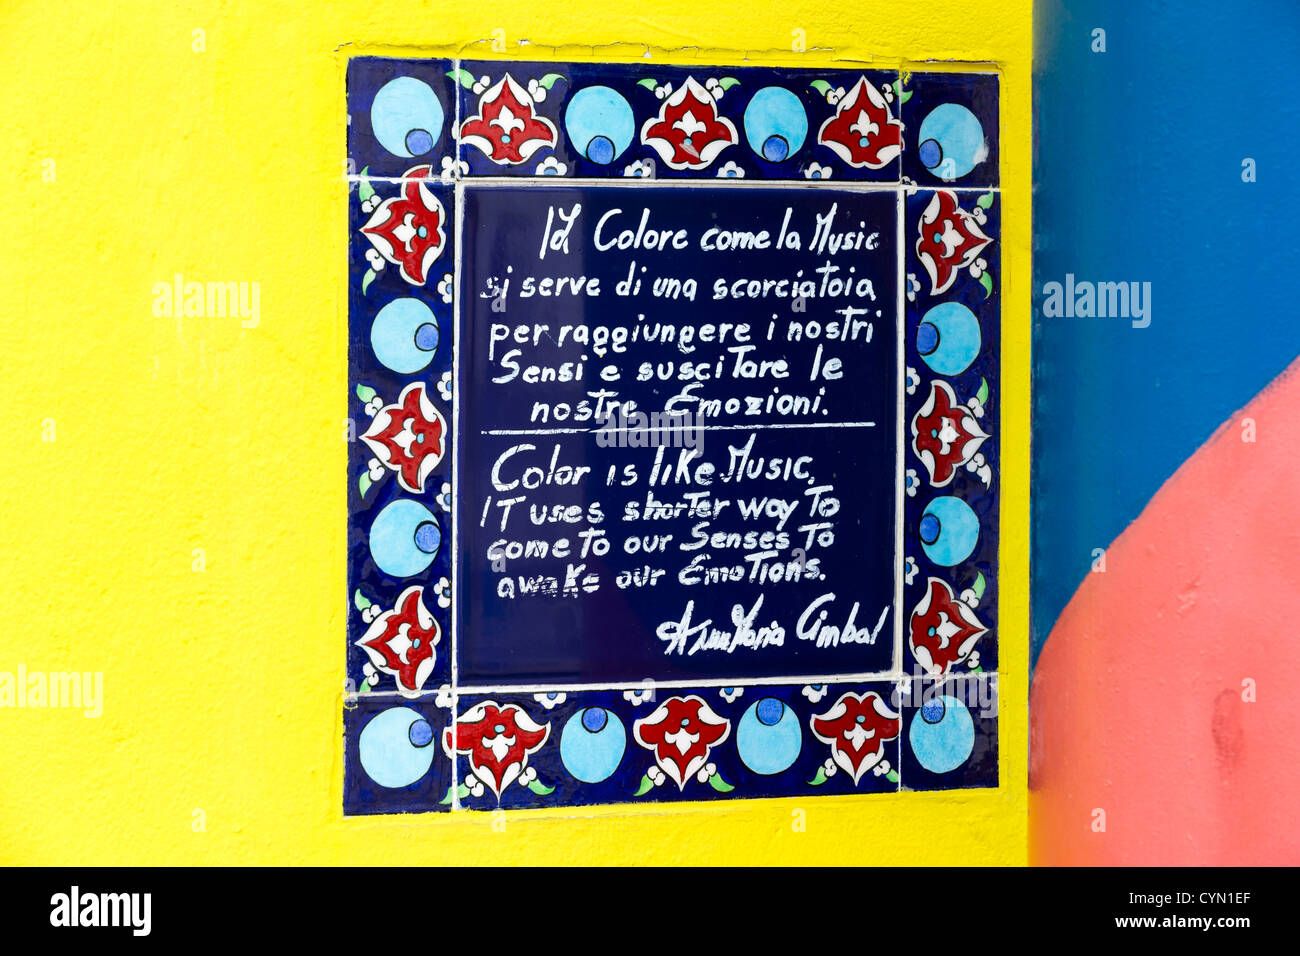 Il Colore come la Music
si serve di una scorciatoia
per raggiungere i nostri
Sensi e suscitare le
nostre Emozioni.
Color is like Music,
IT uses shorter way To
come To our Senses To
awake our EmoTions.
AnnaMaria Cimbal
alamy
alamy
Image ID: CYN1EF
www.alamy.com